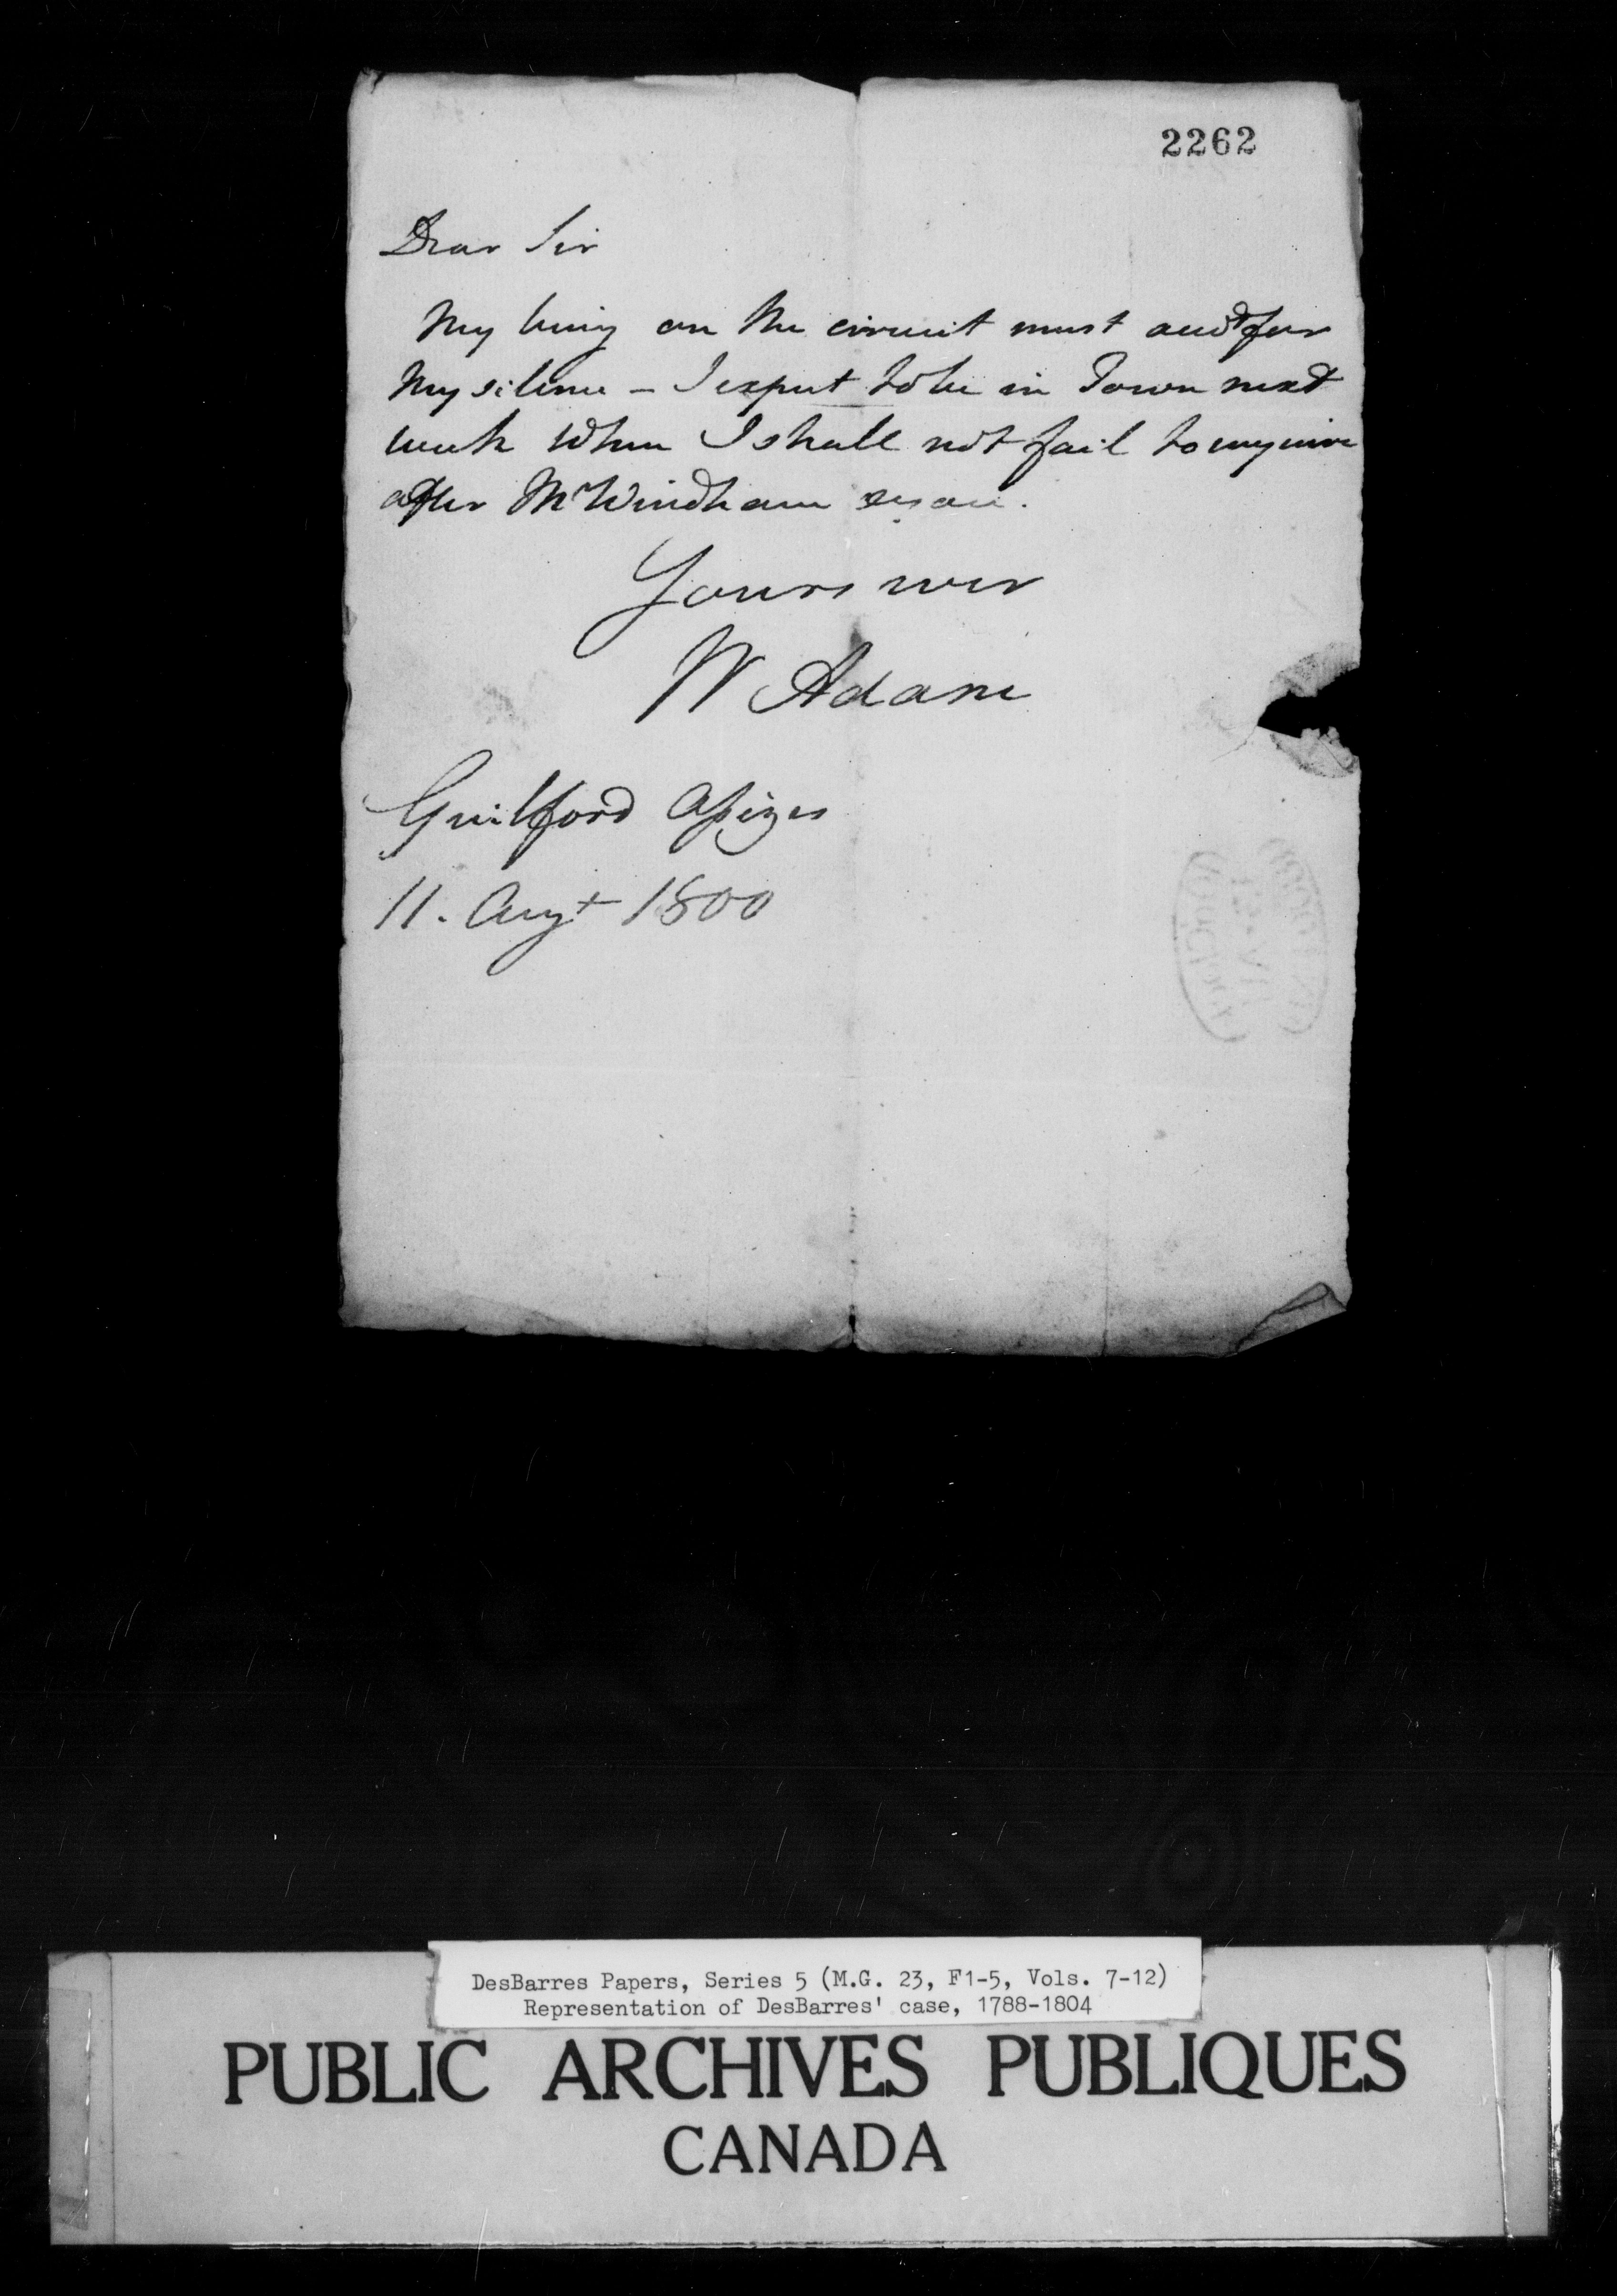 2262
Dear Sir
My being on the circuit must acct for
My silence – I expect to be in Town next
week when I shall not fail to enquire
after Mr Windham
Yours ever
W Adam
Guilford Assizes
11. Augt 1800
DesBarres Papers, Series 5 (M.G. 23, F1-5, Vols. 7-12)
Representation of DesBarres' case, 1788-1804
PUBLIC ARCHIVES PUBLIQUES
CANADA